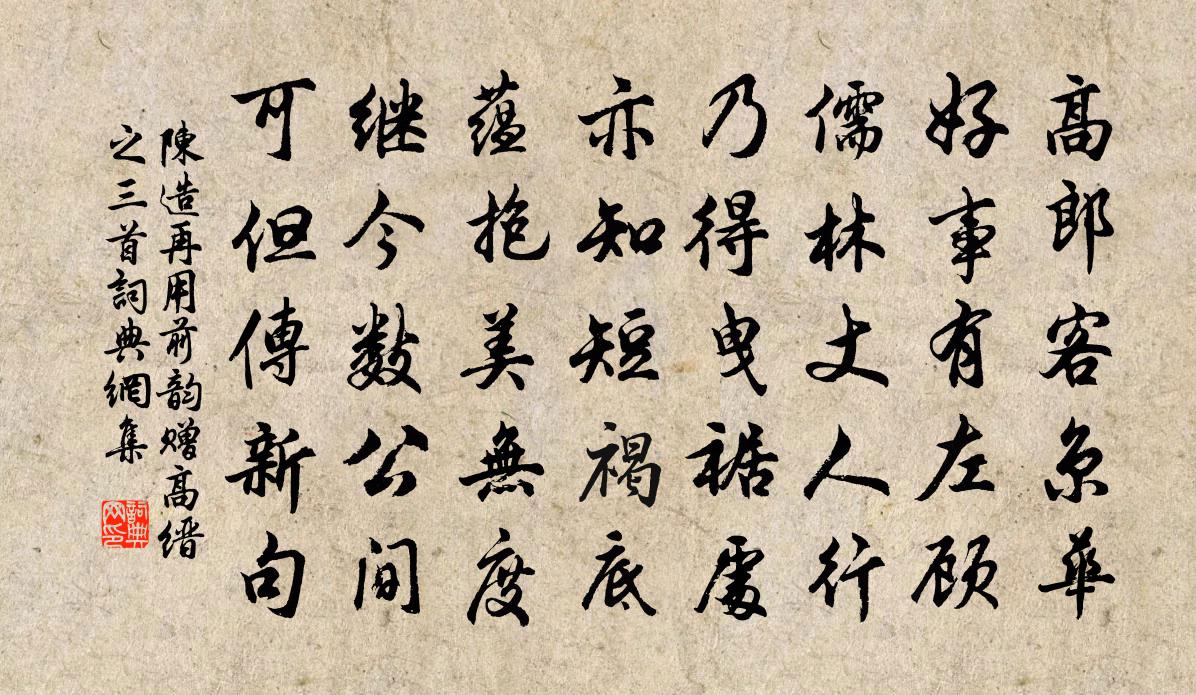 高郎客京華
好事有左顾
儒林丈人行
乃得曳裾處
亦知短褐底
蕴抱美無度
继今数公间
可但傳新句
陳造再用前韵赠高缙
之三首詞典網集
詞典网印